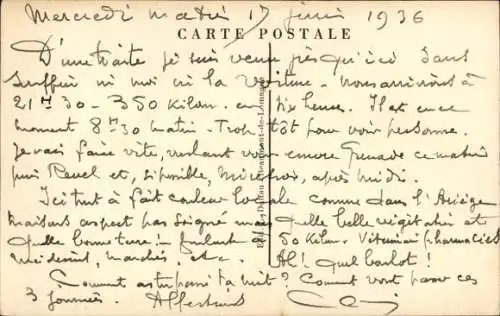 Mercredi matin 17 juin 1936
CARTE POSTALE
D'une traite je suis venu jusqu'ici sans
souffrir ni moi ni la voiture. Nous arrivions à
21h 30 - 350 Kilom. en six heures. Il est en ce
moment 8h 30 matin. Trop tôt pour voir personne.
Je vais faire vite, voulant voir encore Grenade ce matin
puis Revel et, si possible, Mirepoix, après midi.
Ici tout à fait couleur locale comme dans l'Ariège
maisons aspect pas soigné mais quelle belle végétation et
quelle bonne terre:
50 Kilom. Vétérinaire pharmacies
médecins, marchés, etc. Ah! quel boulot!
Comment as tu passé la nuit? Comment vont passer ces
3 journées. Affectueux